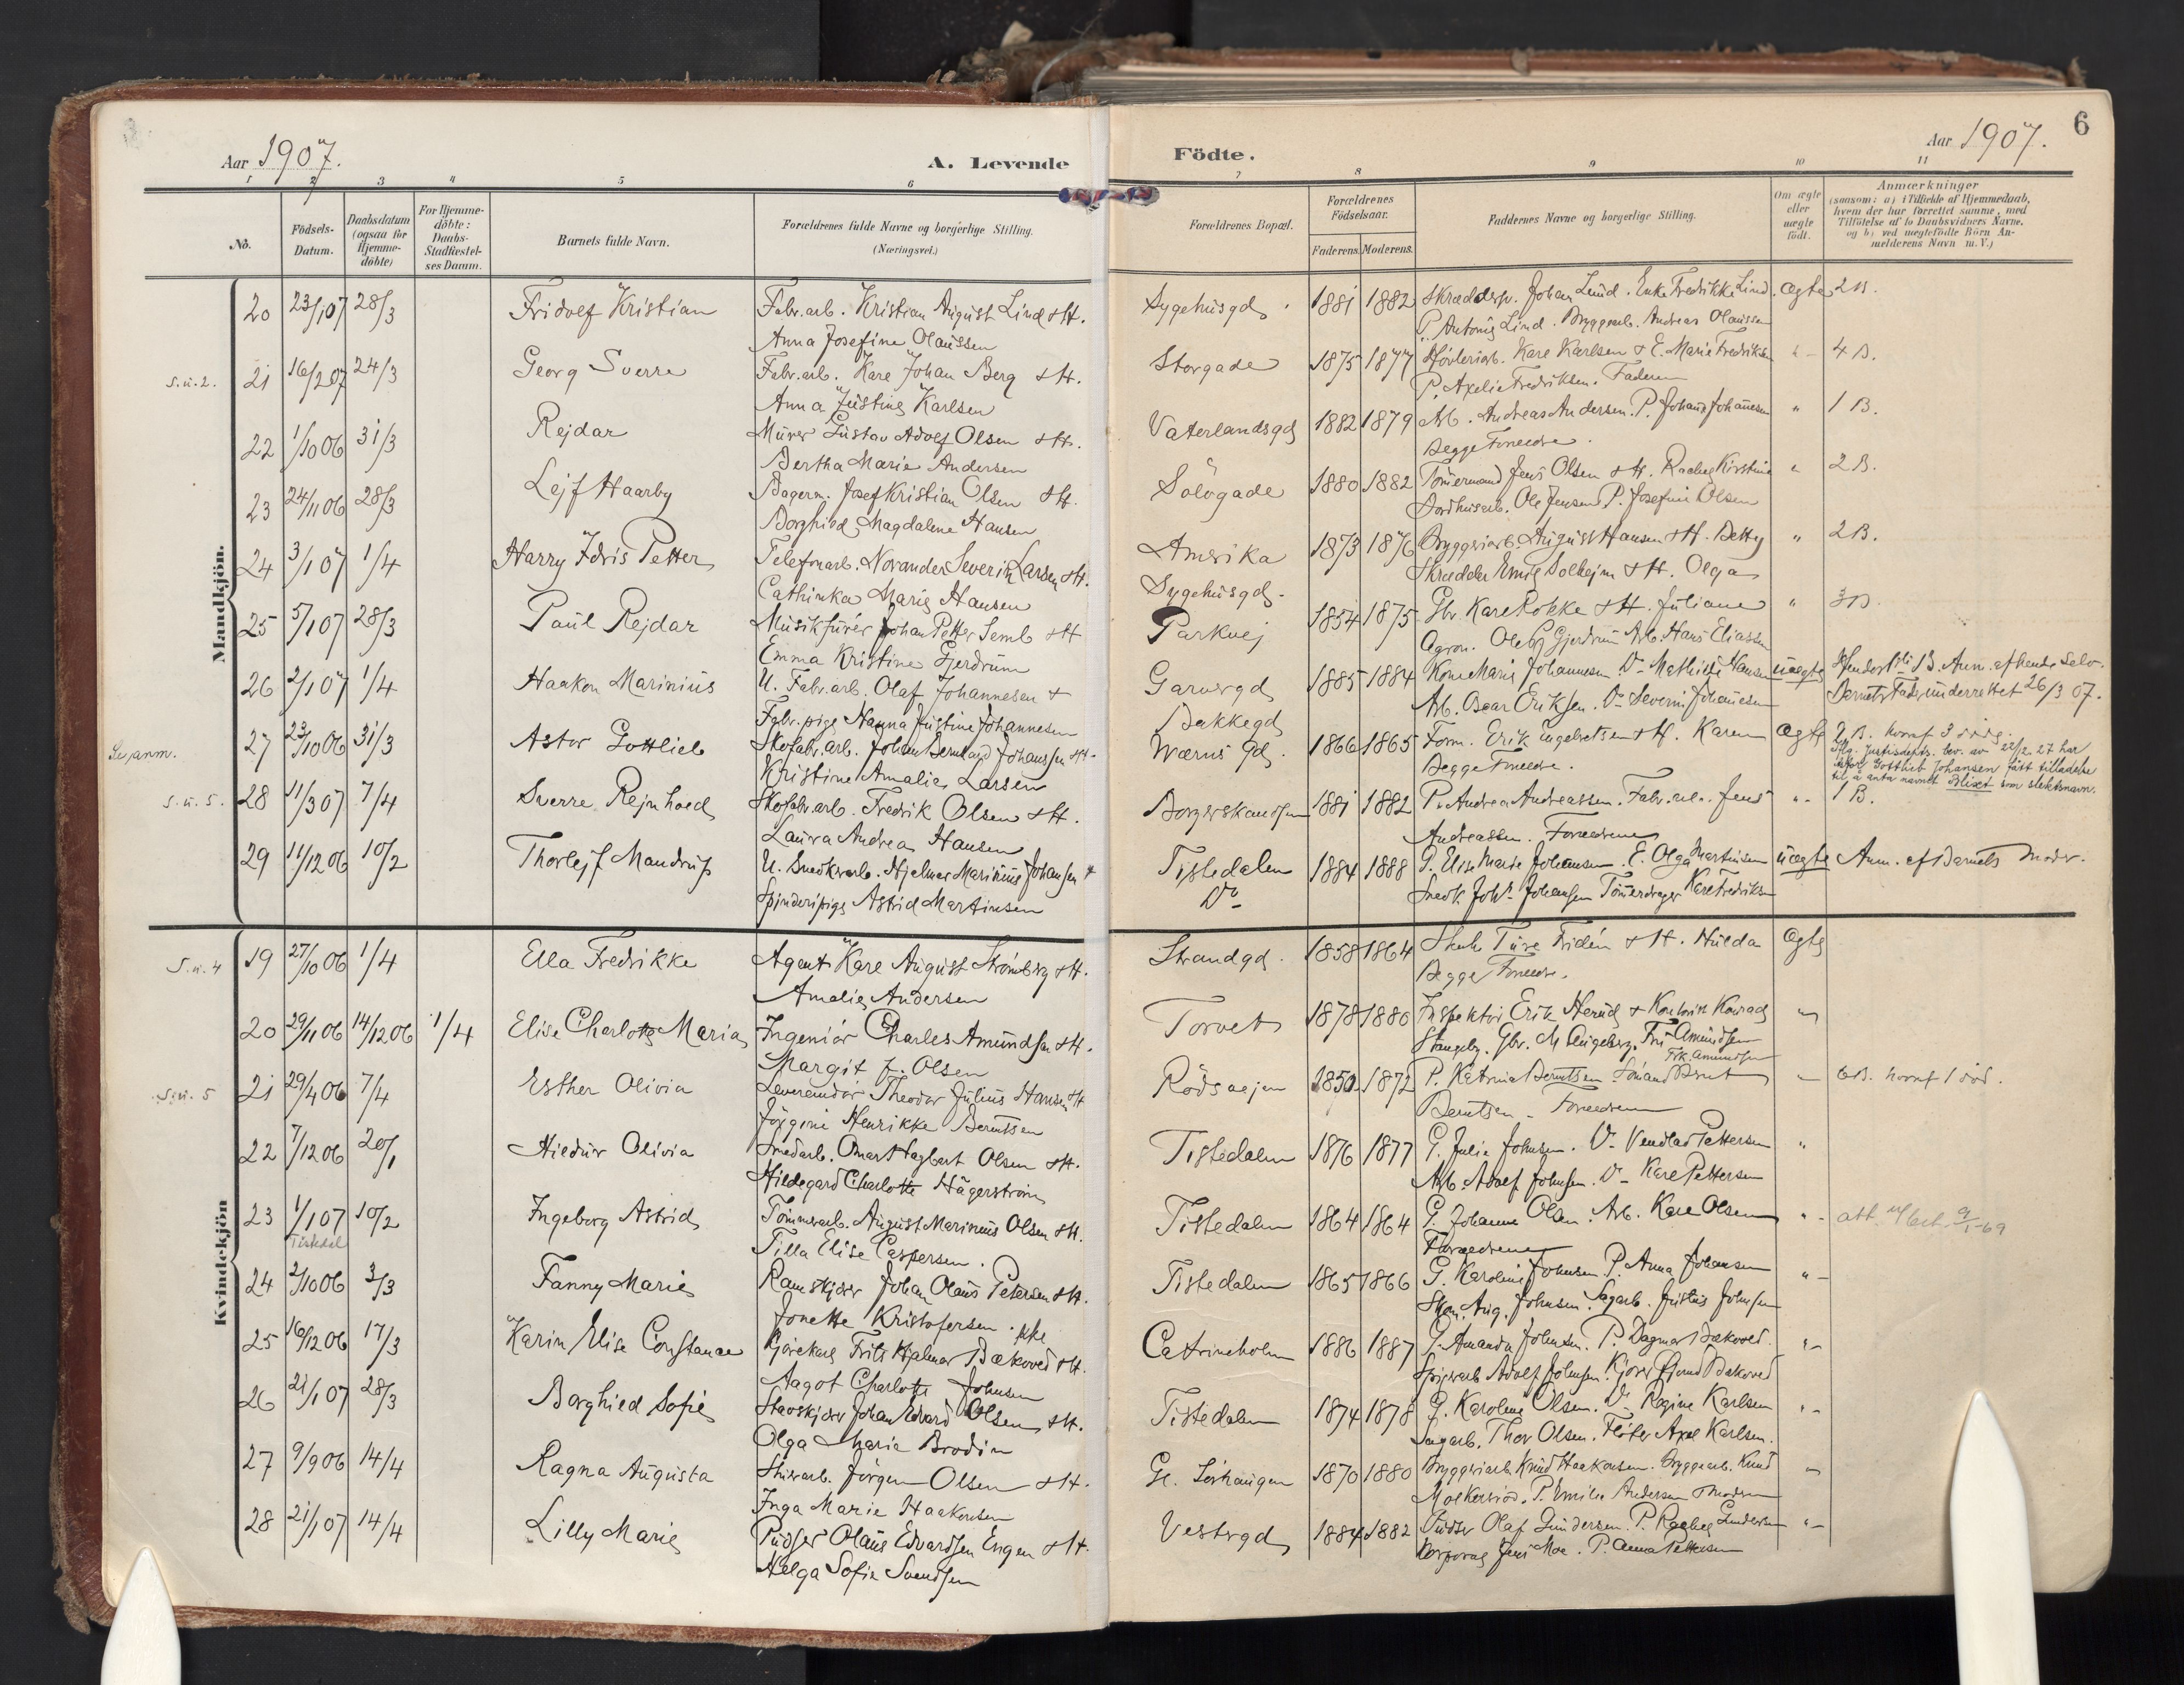 6
Aar 1907.
A. Levende
Födte.
Aar 1907.
1 2 3 4 5 6 7 8 9 10 11
No.
Födsels-
Datum.
Daabsdatum
(ogsaa for
Hjemme-
döbte)
For Hjemme-
döbte:
Daabs-
Stadfæstel-
ses Datum.
Barnets fulde Navn.
Forældrenes fulde Navne og borgerlige Stilling.
(Næringsvei.)
Forældrenes Bopæl.
Forældrenes
Födselsaar.
Faderens. Moderens.
Faddernes Navne og borgerlige Stilling.
Om ægte
eller
uægte
födt.
Anmærkninger
(saasom: a) i Tilfælde af Hjemmedaab,
hvem der har forrettet samme, med
Tilföielse af to Daabsvidners Navne,
og b) ved uægtefödte Börn An-
melderens Navn m. V.)
Mandkjön.
20 23/1 07 28/3 Fridolf Kristian Fabr.arb. Kristian August Lind & H.
Anna Josefine Olaussen
Sygehusgd. 1881 1882 Johan Lund. Enke Fredrikke Lind. ægte 2 B.
P. Antonie Lind. Bryggearb. Andreas Olaussen
s.n.2. 21 16/2 07 24/3 Georg Sverre Fabr.arb. Karl Johan Berg & H.
Anna Justine Karlsen
Storgade 1875 1877 Høvleriarb. Karl Karlsen & E. Marie Fredriksen " 4 B.
P. Axelie Fredriksen. Faderen
22 1/10 06 31/3 Rejdar Murer Gustav Adolf Olsen & H.
Bertha Marie Andersen
Vaterlandsgd 1882 1879 Arb. Andreas Andersen. P. Johanne Johannesen " 1 B.
Begge Forældre.
23 24/11 06 28/3 Lejf Haarby Bagerm. Josef Kristian Olsen & H.
Borghild Magdalene Hansen
Sölvgade 1880 1882 Tömermand Jens Olsen & H. Rachel Kirstine " 2 B.
Ole Jensen P. Josefine Olsen
24 3/1 07 1/4 Harry Idris Petter Telefonarb. Norander Severin Larsen & H.
Cathinka Marie Hansen
Amerika
Sygehusgd.
1873 1876 Bryggeriarb. August Hansen & H. Betty " 2 B.
Skrædder Emil Solhejm & H. Olga
25 5/1 07 28/3 Paul Rejdar Musikfører Johan Petter Semb & H
Emma Kristine Gjerdrum
Parkvej 1854 1875 Gbr. Karl Rokke & H. Juliane " 3 B.
Agron. Ole Gjerdrum Arb. Hans Eliassen
26 2/1 07 1/4 Haakon Marinius U. Fabr.arb. Olaf Johannesen &
Fabr.pige Nanna Justine Johannesen
Garvergd
Bakkegd
1885 1884 Kone Marie Johannesen. Do Mathilde Hansen uægte Anm. af hende selv.
Arb. Oscar Eriksen. Do Severin Johannesen Barnets Fader underrettet 26/3 07.
Se anm. 27 23/10 06 31/3 Astor Gottlieb Skofabr.arb. Johan Bernhard Johanssen & H.
Kristine Amalie Larsen
Wærns Gd. 1866 1865 Form. Erik Engebretsen & H. Karen ægte 9 B. hvoraf 3 døde.
Begge Forældre.
Iflg. Justisdepts. bev. av 22/2.27 har
Astor Gottlieb Johansen fått tilladelse
til å anta navnet Blixt som slektsnavn.
s.n.5. 28 11/3 07 7/4 Sverre Rejnhold Skofabr.arb. Fredrik Olsen & H.
Laura Andrea Hansen
Borgerskandsen 1881 1882 P. Andrea Andreassen. Fabr.arb. Jens " 1 B.
Andreassen. Forældrene
29 11/12 06 10/2 Thorlejf Mandrup U. Snedkerarb. Hjelmer Marinius Johansen &
Spinderipige Astrid Martinsen
Tistedalen
Do
1884 1888 P. Elise Marie Johansen. E. Olga Martinsen uægte Anm. af Barnets Moder.
Snedk. Johs. Johansen Tömerdrager Karl Fredriksen
Kvindekjön
s.n.4 19 27/10 06 1/4 Ella Fredrikke Agent Karl August Strömberg & H.
Amalie Andersen
Strandgd. 1858 1864 Ture Fridén & H. Hulda ægte
Begge Forældre.
20 29/11 06 14/12 06 1/4 Elise Charlotte Marie Ingeniör Charles Amundsen & H.
Margit F. Olsen
Torvet 1878 1880 Inspektör Erik Herud & Kontorist Konrad "
Stangeby. Gbr. M. Engeberg. Fru Amundsen
Frk. Amundsen
s.n.5 21 29/4 06 7/4 Esther Olivia Leverandör Theodor Julius Hansen & H
Jörgine Henrikke Berntsen
Rödsvejen 1850 1872 P. Katrine Berntsen. Sömand Bernt " 6 B. hvoraf 1 död.
Berntsen. Forældrene
22 7/12 06 20/1 Hildur Olivia Smedarb. Omar Dagbart Olsen & H.
Hildegard Charlotte Hägerström
Tistedalen 1876 1877 G. Julie Johnsen. Do Vendla Pettersen "
Arb. Adolf Johnsen. Do Karl Pettersen
23 1/1 07 10/2 Ingeborg Astrid Tömmerarb. August Marinius Olsen & H.
Tistedal
Tilla Elise Caspersen.
Tistedalen 1864 1864 G. Johanne Olsen. Arb. Karl Olsen " att. utst. 9/1-69
Forældrene
24 2/10 06 3/3 Fanny Marie Ramskjærer Johan Olaus Petersen & H.
Jonette Kristofersen.
Tistedalen 1865 1866 G. Karoline Johnsen P. Anna Johansen "
Skom. Aug. Johnsen. Sagarb. Justus Johnsen
25 16/12 06 17/3 Karin Elise Constance Kjörekarl Frits Hjalmar Bakoved & H.
Aagot Charlotte Johnsen
Catrineholm 1886 1887 G. Amanda Johnsen. P. Dagmar Bakoved. "
Adolf Johnsen. Bakoved
26 21/1 07 28/3 Borghild Sofie Stavskjærer Johan Edvard Olsen & H.
Olga Marie Brodin
Tistedalen 1874 1878 G. Karoline Olsen. Do Ragine Karlsen "
Sagarb. Thor Olsen. Flöter Axel Karlsen.
27 9/9 06 14/4 Ragna Augusta Jörgen Olsen & H.
Inga Marie Haakonsen
Gl. Sörhaugen 1870 1880 Bryggeriarb. Knud Haakonsen. Bryggearb. Knud "
P. Emilie Andersen & Moderen
28 21/1 07 14/4 Lilly Marie Pudser Olaus Edvardsen Engen & H.
Helga Sofie Svendsen
Vestergd 1884 1882 Pudser Olaf Gundersen. P. Rachel Gundersen "
Korporal Jens Moe. P. Anna Pettersen